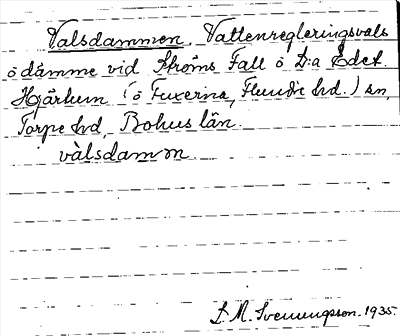 Valsdammen. Vattenregleringsvals
ö dämme vid Ströms Fall ö L:a Edet.
Hjärtum (ö Fuxerna, Flundre hd.) sn,
Torpe hd, Bohus län.
vàlsdamm
S. M. Svenungsson. 1935.